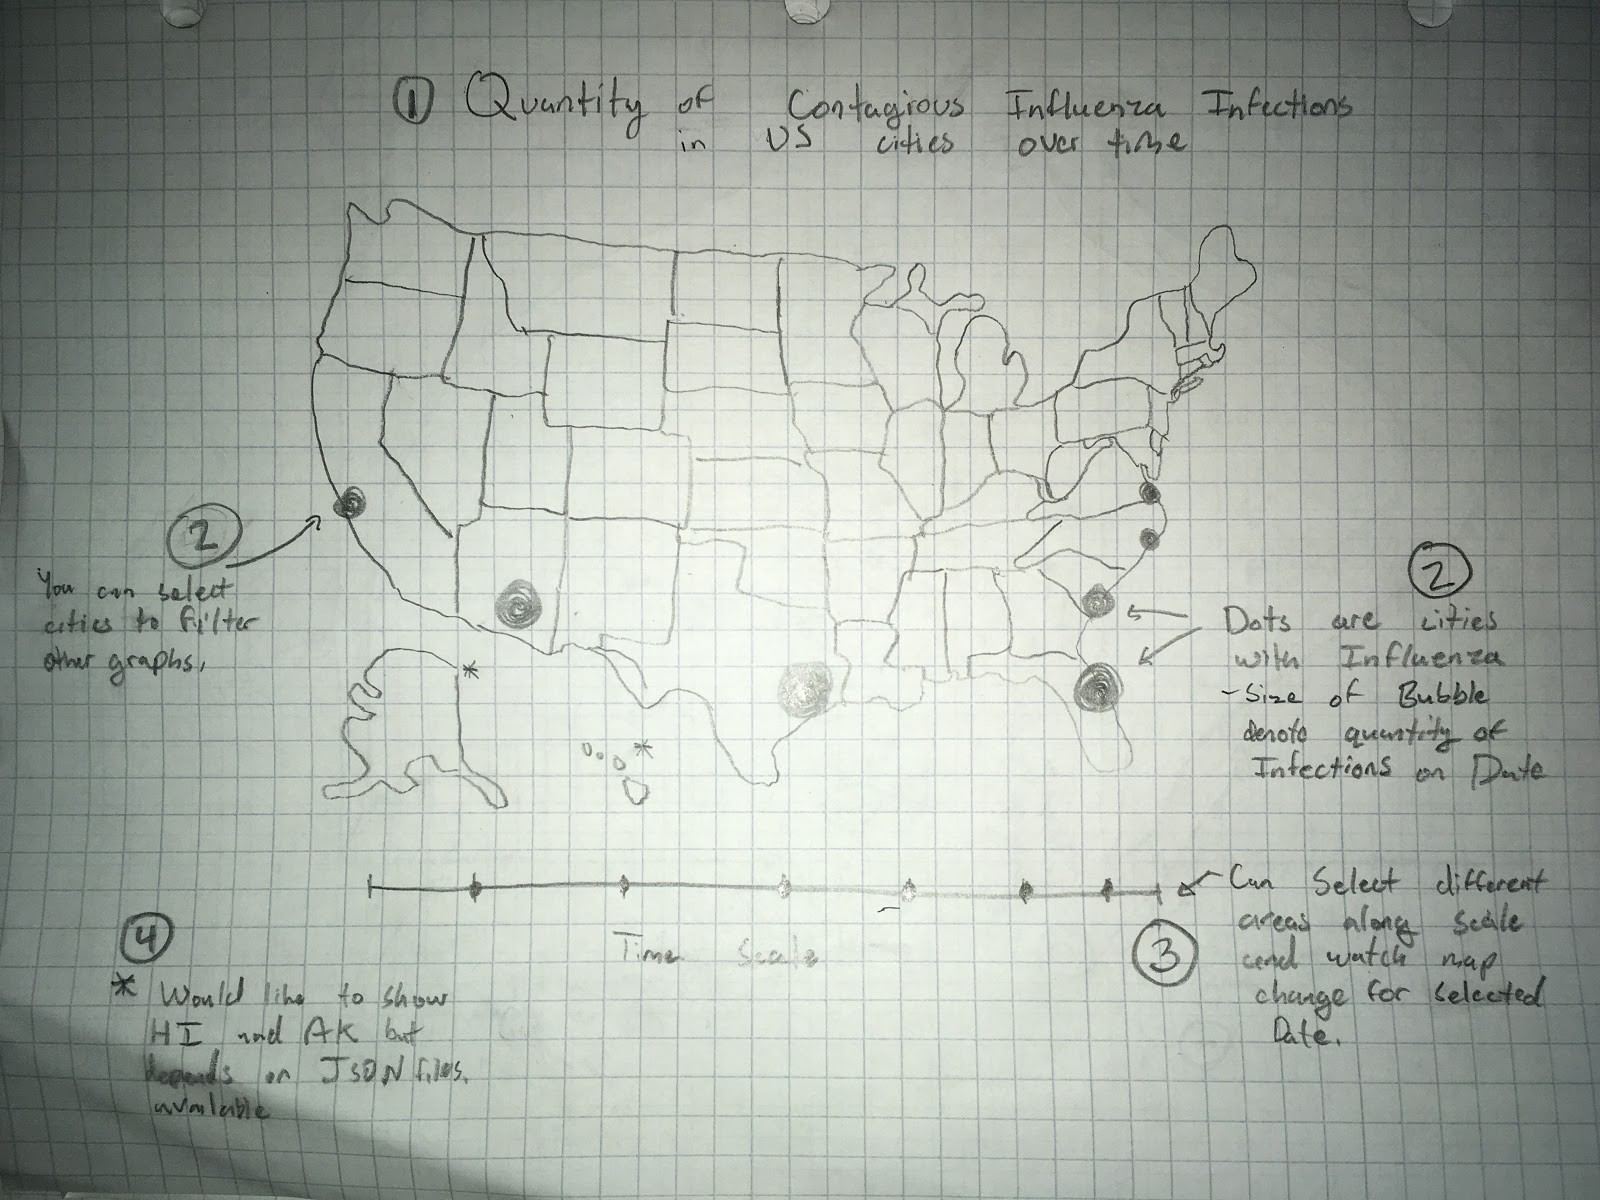 ① Quantity of Contagious Influenza Infections
in US cities over time
②
You can select
cities to filter
other graphs.
②
Dots are cities
with Influenza
- Size of Bubble
denote quantity of
Infections on Date
*
*
Time Scale
③
Can Select different
areas along scale
and watch map
change for selected
Date.
④
* Would like to show
HI and AK but
depends on JSON files.
available